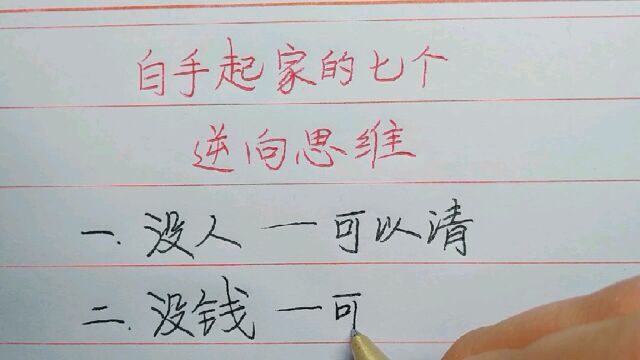 白手起家的七个
逆向思维
一.没人一可以清
二.没钱一可